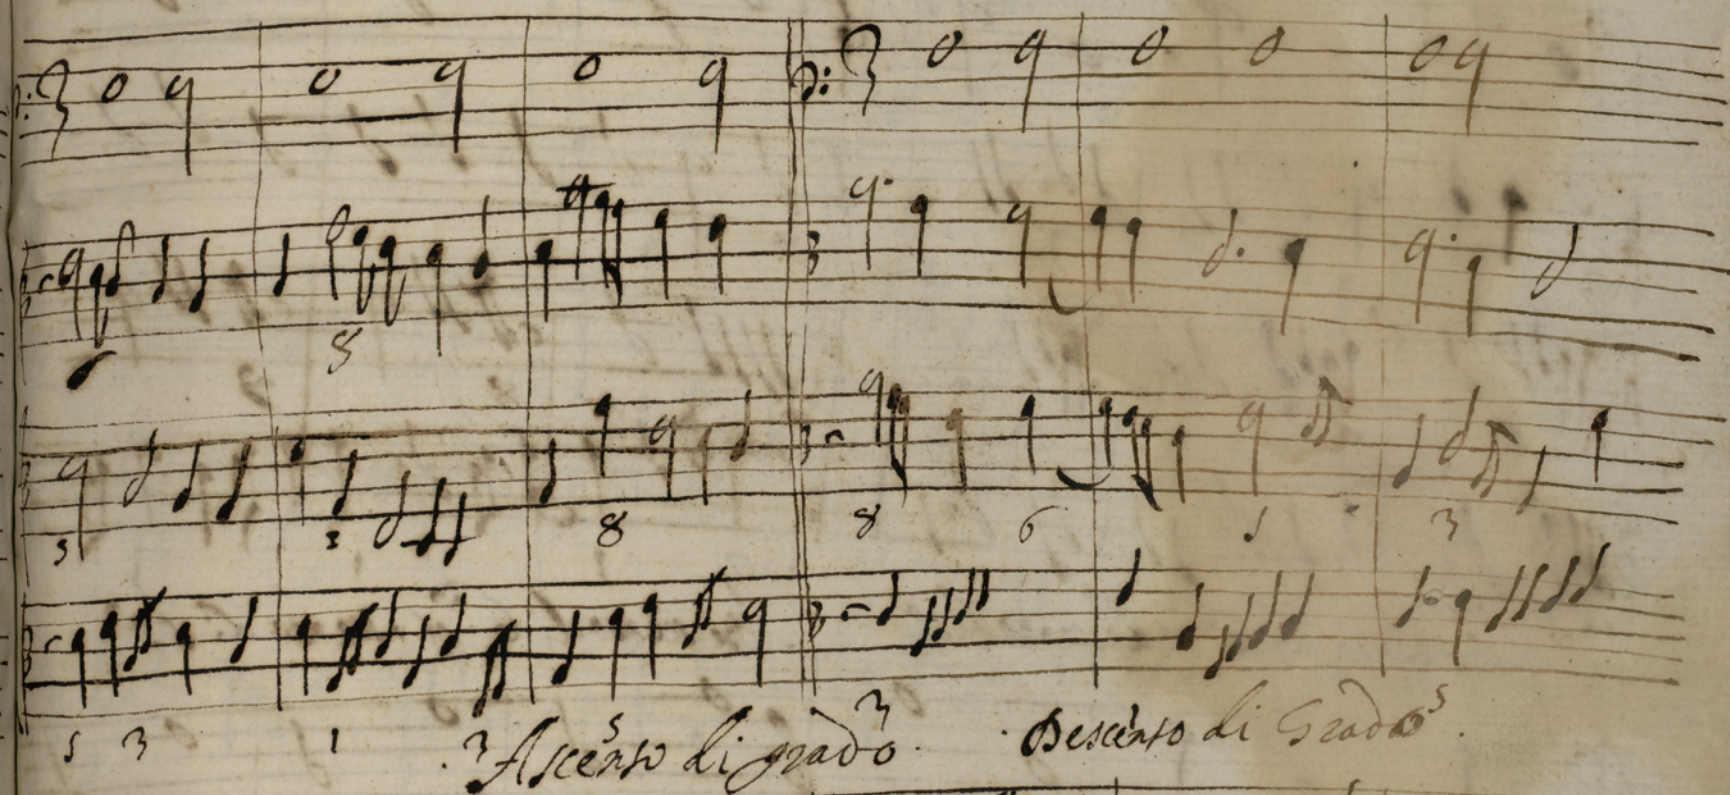 3 3
8
5 3 8 8 6 5 3
5 3 1 3 5 3 5
Ascenso di grado. Descenso di Grado.